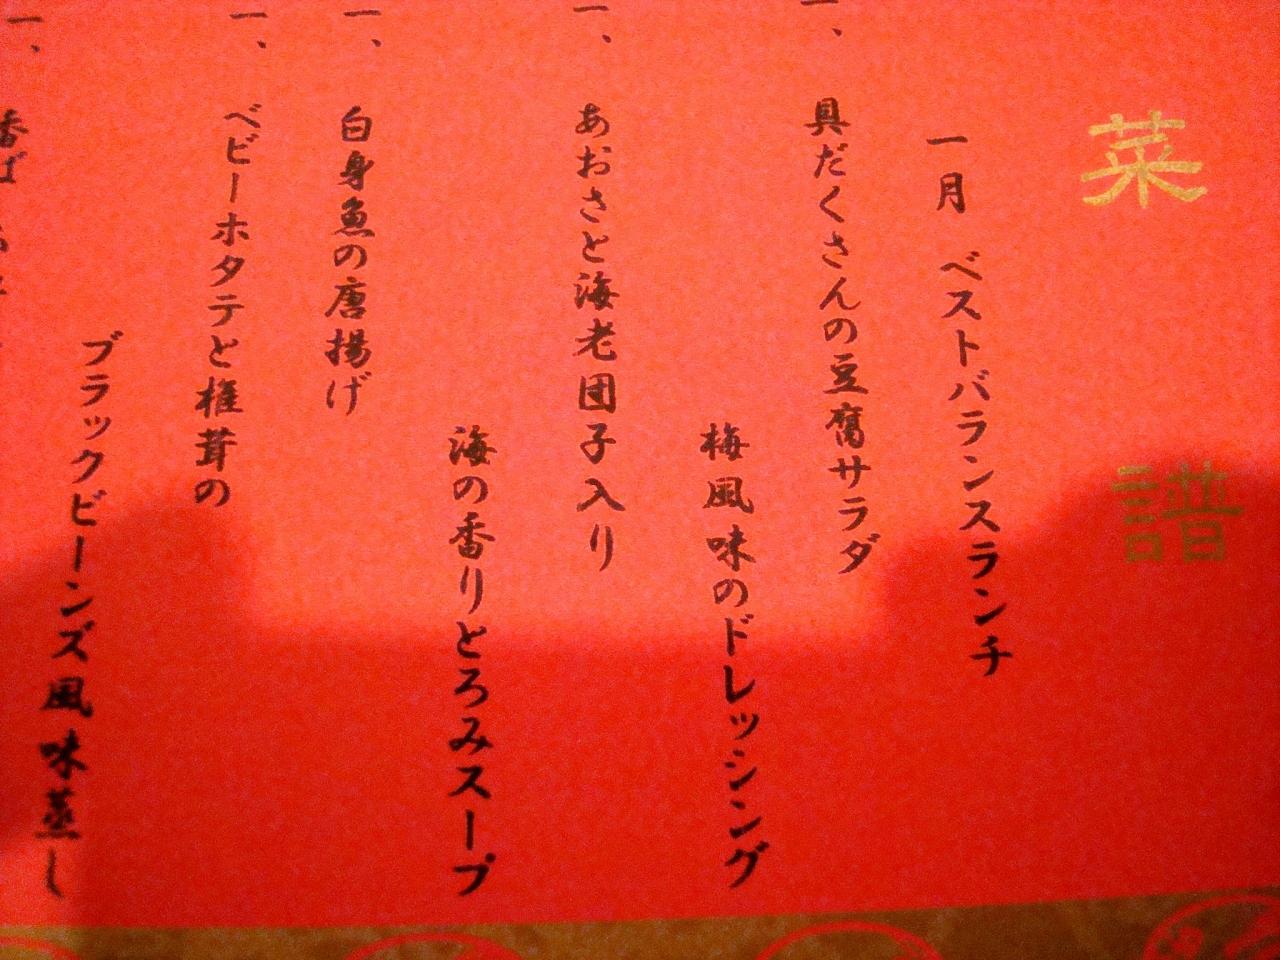 菜譜
一月 ベストバランスランチ
一、具だくさんの豆腐サラダ
梅風味のドレッシング
一、あおさと海老団子入り
海の香りとろみスープ
一、白身魚の唐揚げ
一、ベビーホタテと椎茸の
ブラックビーンズ風味蒸し
一、香ば